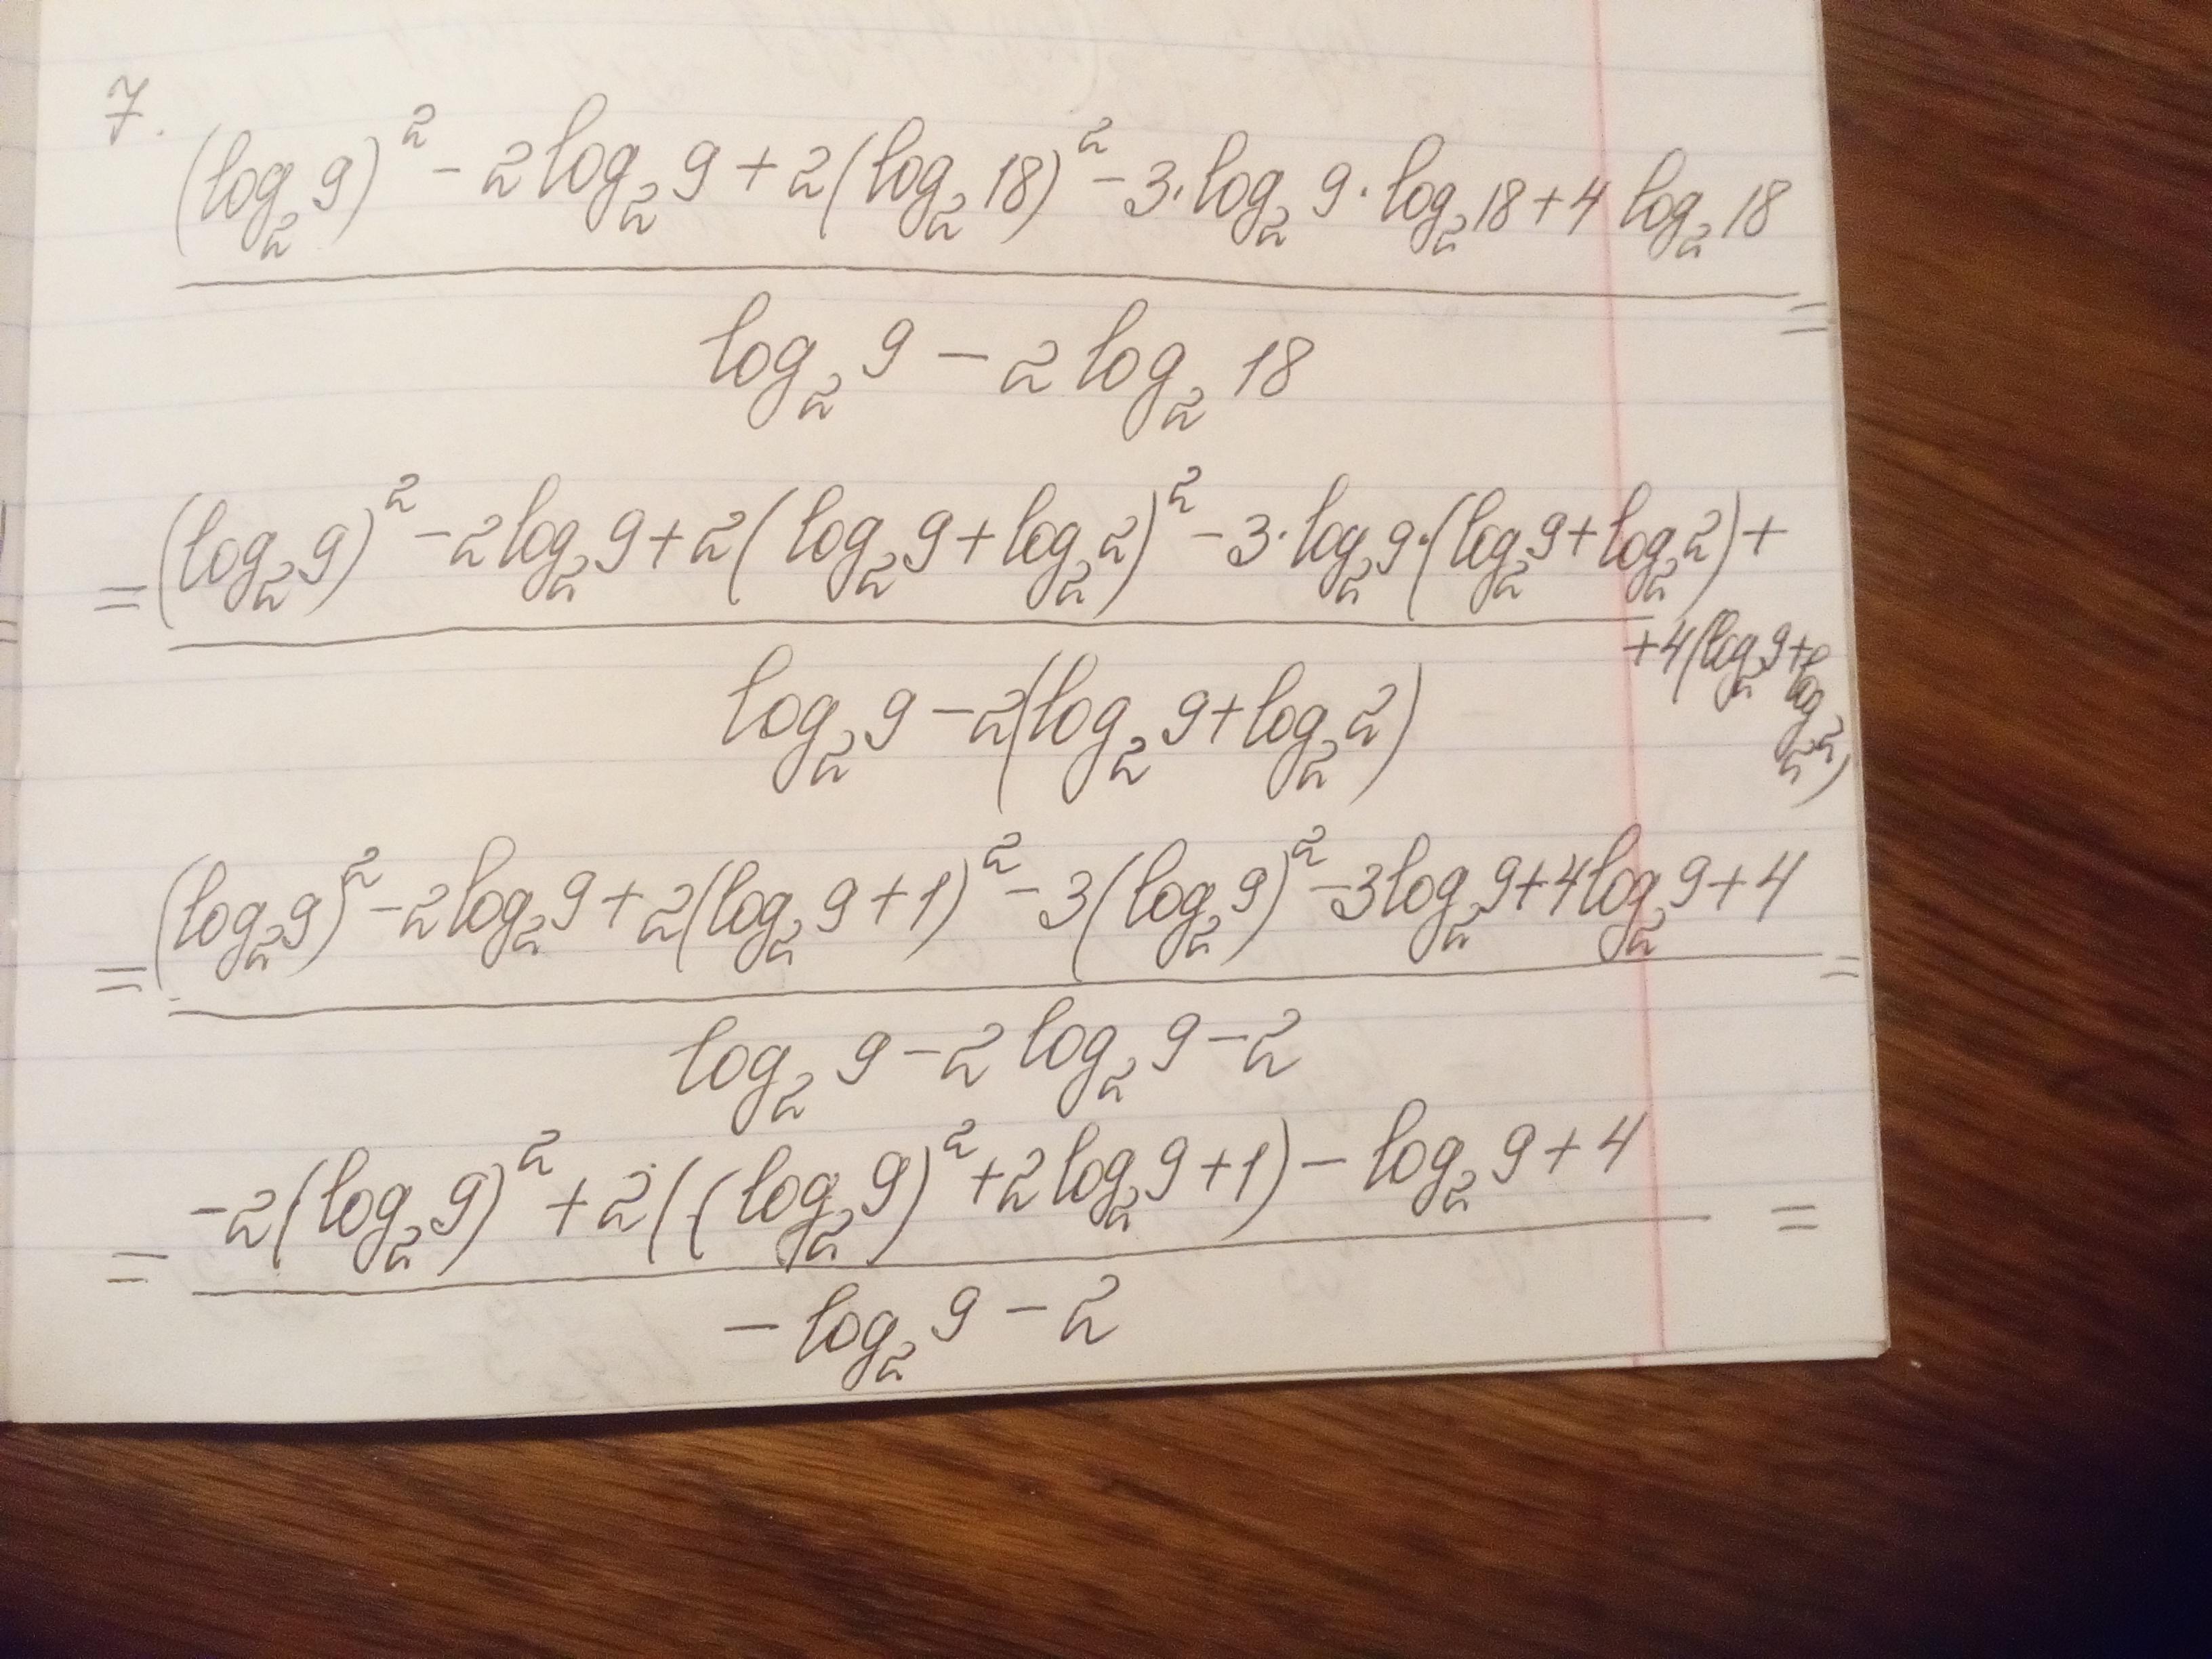 7.
(log₂ 9)² - 2 log₂ 9 + 2(log₂ 18)² - 3·log₂ 9·log₂ 18 + 4 log₂ 18
=
log₂ 9 - 2 log₂ 18
= (log₂ 9)² - 2 log₂ 9 + 2(log₂ 9 + log₂ 2)² - 3·log₂ 9·(log₂ 9 + log₂ 2) +
+ 4(log₂ 9 + log₂ 2)
log₂ 9 - 2(log₂ 9 + log₂ 2)
= (log₂ 9)² - 2 log₂ 9 + 2(log₂ 9 + 1)² - 3(log₂ 9)² - 3 log₂ 9 + 4 log₂ 9 + 4 =
log₂ 9 - 2 log₂ 9 - 2
= -2(log₂ 9)² + 2((log₂ 9)² + 2 log₂ 9 + 1) - log₂ 9 + 4 =
- log₂ 9 - 2